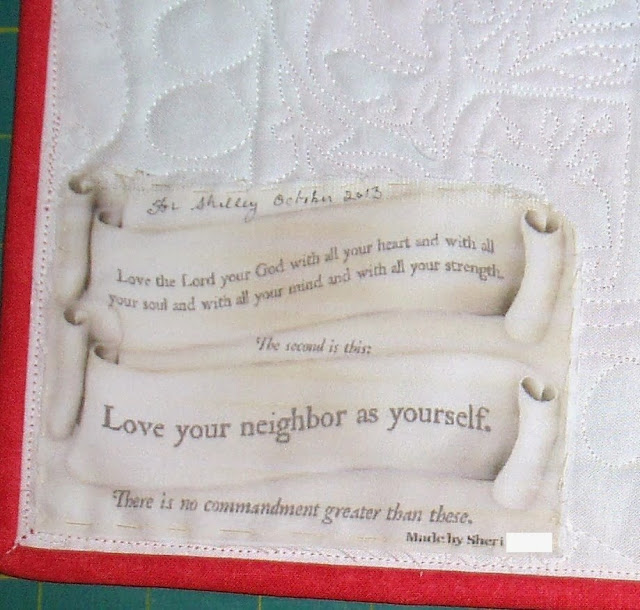 For Shelley October 2013
Love the Lord your God with all your heart and with all
your soul and with all your mind and with all your strength.
The second is this:
Love your neighbor as yourself.
There is no commandment greater than these.
Made by Sheri